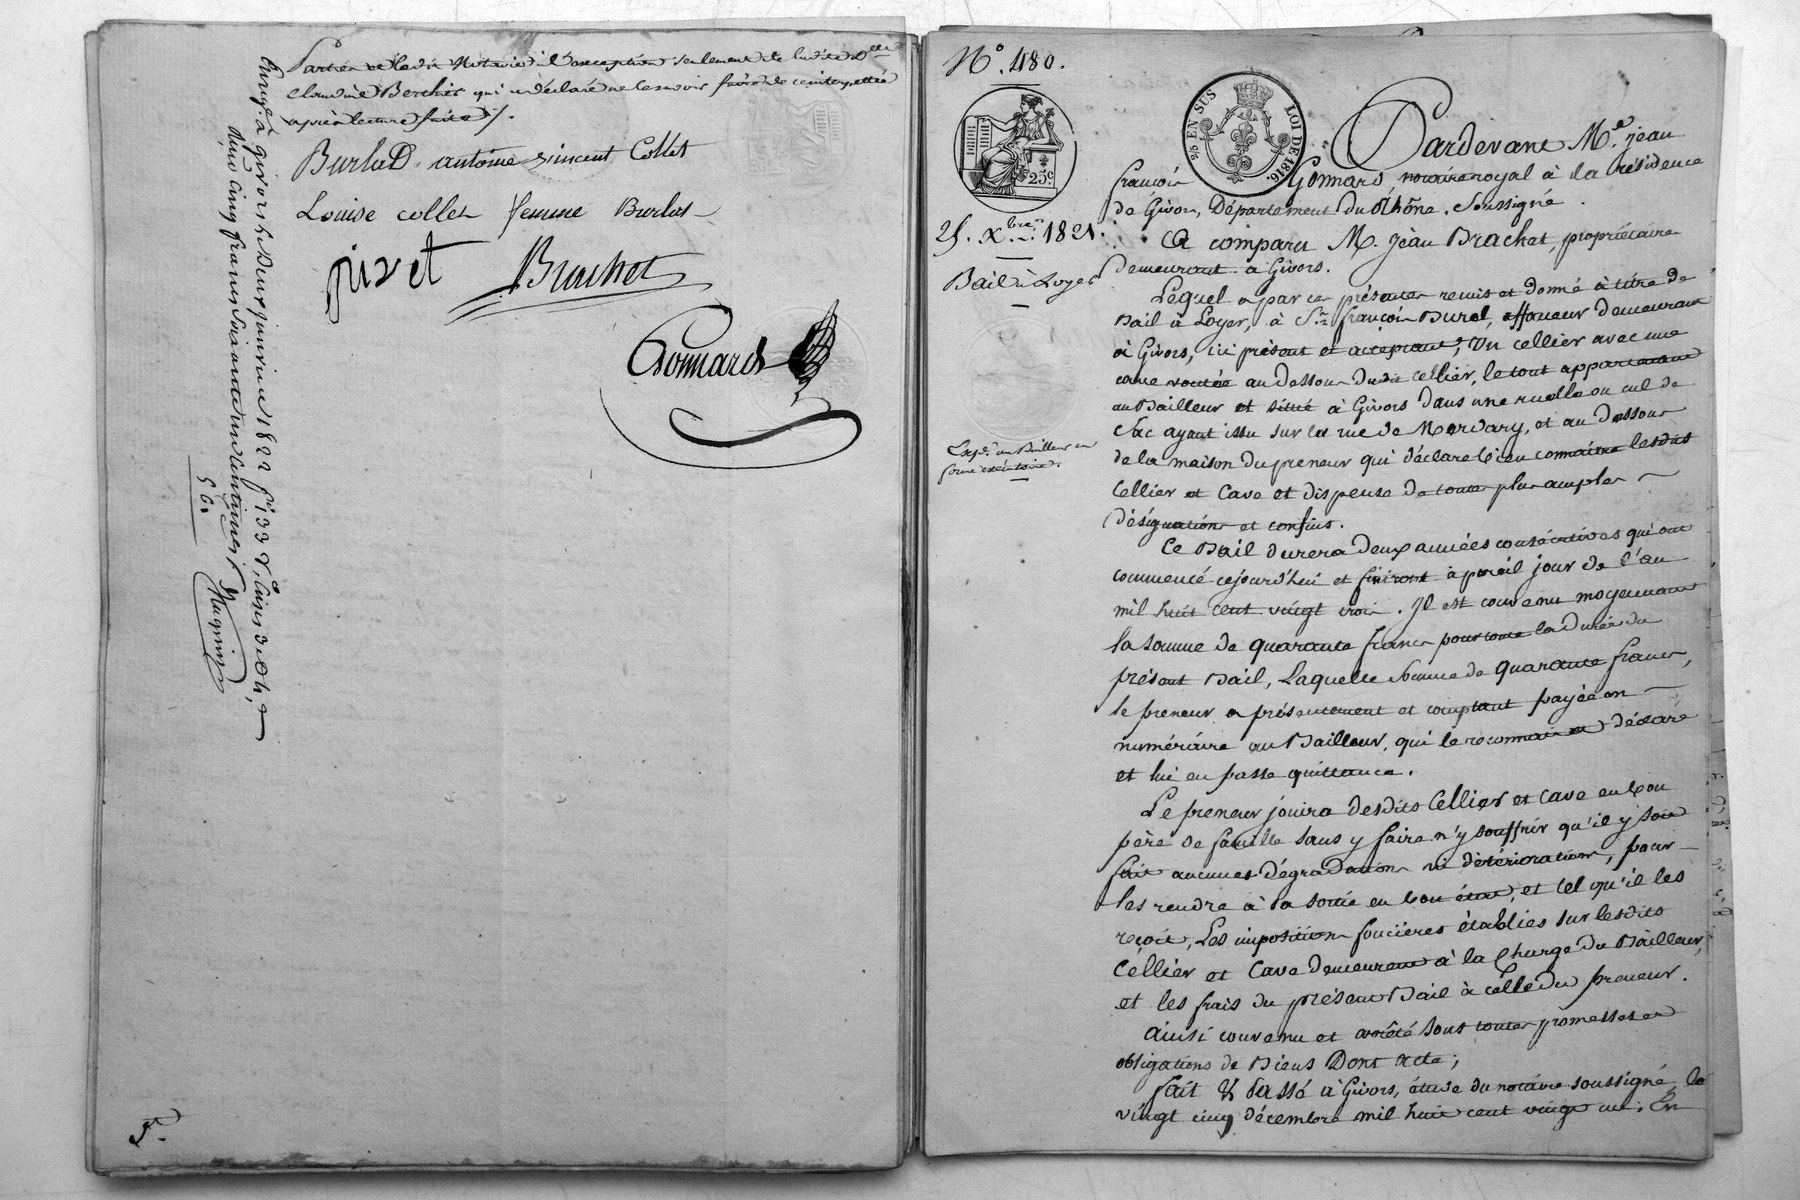 Parties et ledit Notaire à l'exception seulement de ladite Dlle
Claudine Berchet qui a déclaré ne le savoir faire de ce interpellée
après lecture faite /.
Burlad antoine vincent Collet
Louise collet femme Burlat
pivet Brachet
Gonnard
Enreg. à Givors le Deux janvier 1822 f° 133 V°, Cases 3 et 4,
Reçu cinq francs soixante un centimes.
5 61
No. 480.
25 EN SUS LOI DE 1816.
25c.
25. Xbre 1821.
Bail à Loyer
Expd. au Bailleur en
forme exécutoire.
Pardevant Me. Jean
françois Gonnard, notaire royal à la résidence
de Givors, Département du Rhône, Soussigné.
A comparu M. Jean Brachet, propriétaire
demeurant à Givors.
Lequel a par ces présentes remis et donné à titre de
Bail à Loyer, à Sr. françois Burel, affaneur demeurant
à Givors, ici présent et acceptant; Un cellier avec une
cave voutée au dessous dudit cellier, le tout appartenant
au Bailleur et situé à Givors dans une ruelle ou cul de
Sac ayant issu sur la rue de Mordary, et au dessous
de la maison du preneur qui déclare bien connaitre lesdits
Cellier et Cave et dispense de toutes plus amples
désignations et confins.
Ce Bail durera deux années consécutives qui ont
commencé cejourd'hui et finiront à pareil jour de l'an
mil huit cent vingt trois. Il est convenu moyennant
la somme de quarante francs pour toute la durée du
présent Bail, Laquelle somme de quarante francs,
le preneur a présentement et comptant payée en
numéraire au Bailleur, qui le reconnait et déclare
et lui en passe quittance.
Le preneur jouira desdits Cellier et cave en bon
père de famille sans y faire n'y souffrir qu'il y soit
fait aucunes dégradations ni détériorations, pour
les rendre à sa sortie en bon état, et tel qu'il les
reçoit, Les impositions foncières établies sur lesdits
Cellier et Cave demeurant à la Charge du Bailleur,
et les frais du présent Bail à celle du preneur.
Ainsi convenu et arrêté sous toutes promesses et
obligations de Biens Dont Acte;
fait & Passé à Givors, étude du notaire soussigné, le
vingt cinq décembre mil huit cent vingt un; En